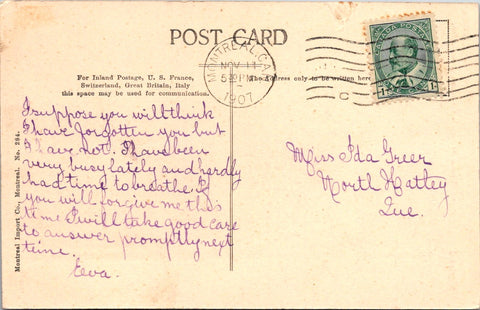 POST CARD
MONTREAL, CA
NOV 11
5 30 PM
1907
CANADA POSTAGE
1 1
For Inland Postage, U. S. France,
Switzerland, Great Britain, Italy
this space may be used for communication.
The address only to be written here
I suppose you will think
I have forgotten you but
I have not. I have been
very busy lately and hardly
had time to breathe. If
you will forgive me this
time I will take good care
to answer promptly next
time.
Eeva.
Miss Ida Greer
North Hatley
Que.
Montreal Import Co., Montreal. No. 284.